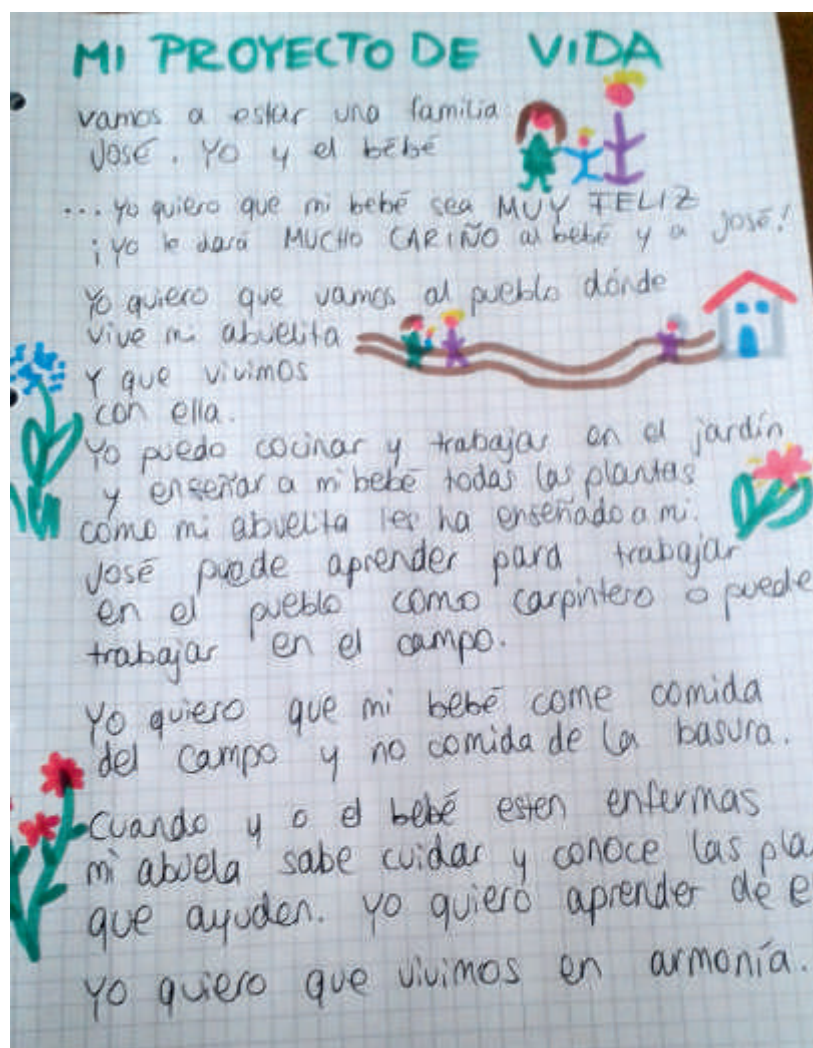 MI PROYECTO DE VIDA
vamos a estar una familia
JOSÉ. YO y el bebé
... yo quiero que mi bebé sea MUY FELIZ
¡ YO le dará MUCHO CARIÑO al bebé y a José!
Yo quiero que vamos al pueblo dónde
vive mi abuelita
Y que vivimos
con ella.
Yo puedo cocinar y trabajar en el jardín
y enseñar a mi bebé todas las plantas
como mi abuelita les ha enseñado a mi.
José puede aprender para trabajar
en el pueblo como carpintero o puede
trabajar en el campo.
Yo quiero que mi bebé come comida
del campo y no comida de la basura.
Cuando y o el bebé esten enfermas
mi abuela sabe cuidar y conoce las pla
que ayuden. Yo quiero aprender de e
Yo quiero que vivimos en armonía.